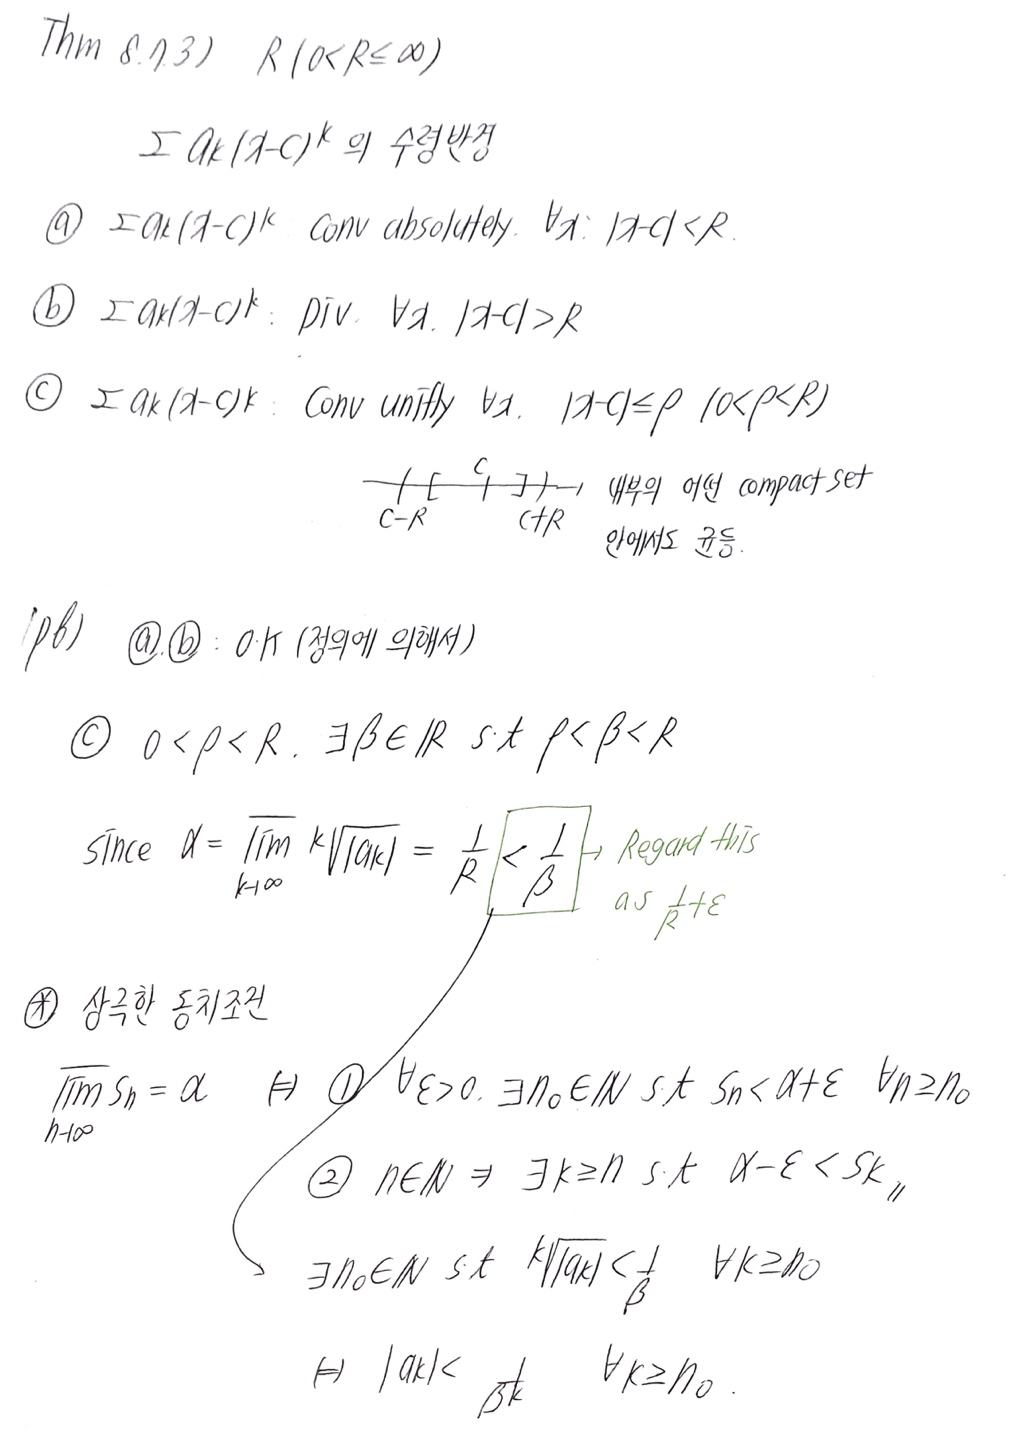 Thm 8.7.3) R (0<R≤∞)
Σ aₖ(x-c)ᵏ 의 수렴반경
ⓐ Σaₖ(x-c)ᵏ conv absolutely. ∀x: |x-c|<R.
ⓑ Σaₖ(x-c)ᵏ: Div. ∀x. |x-c|>R
ⓒ Σaₖ(x-c)ᵏ: Conv unifly ∀x. |x-c|≤ρ (0<ρ<R)
C
C-R C+R
→ 내부의 어떤 compact set
안에서도 균등.
pf) ⓐ.ⓑ: O.K (정의에 의해서)
ⓒ 0<ρ<R. ∃β∈ℝ s.t ρ<β<R
since α = lim̅ k→∞ ᵏ√|aₖ| = 1/R < 1/β → Regard this
as 1/R+ε
⊛ 상극한 동치조건
lim̅ n→∞ Sn = α ⇔ ① ∀ε>0. ∃n₀∈ℕ s.t Sn<α+ε ∀n≥n₀
② n∈ℕ ⇒ ∃k≥n s.t α-ε<Sk〃
∃n₀∈ℕ s.t ᵏ√|aₖ|<1/β ∀k≥n₀
⇔ |aₖ|< 1/βᵏ ∀k≥n₀.